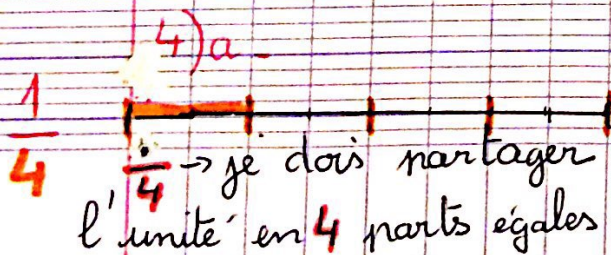 4)a-
1/4
./4 → je dois partager
l'unité en 4 parts égales